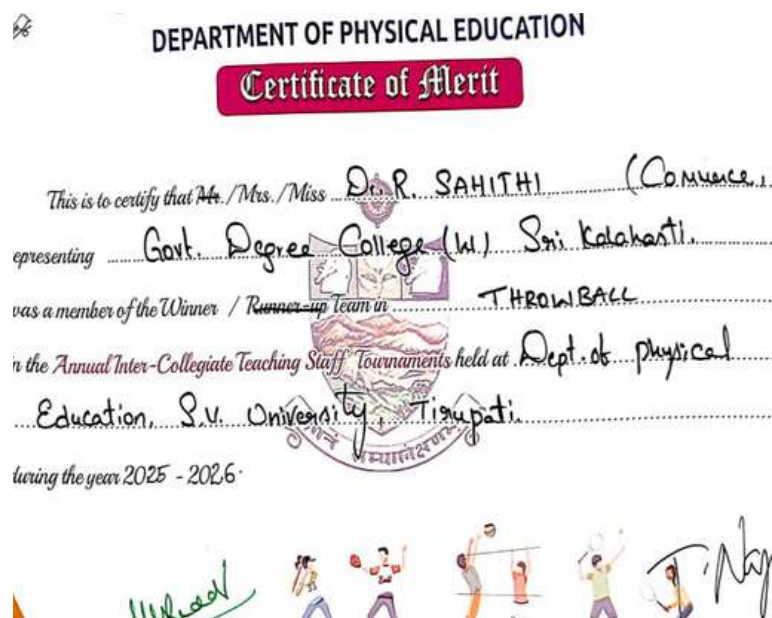 DEPARTMENT OF PHYSICAL EDUCATION
Certificate of Merit
This is to certify that Mr./Mrs./Miss Dr. R. SAHITHI (Commerce,
epresenting Govt. Degree College (W) Sri Kalahasti.
was a member of the Winner / Runner-up Team in THROWBALL
n the Annual Inter-Collegiate Teaching Staff Tournaments held at Dept. of physical
Education, S.V. University, Tirupati.
during the year 2025 - 2026.